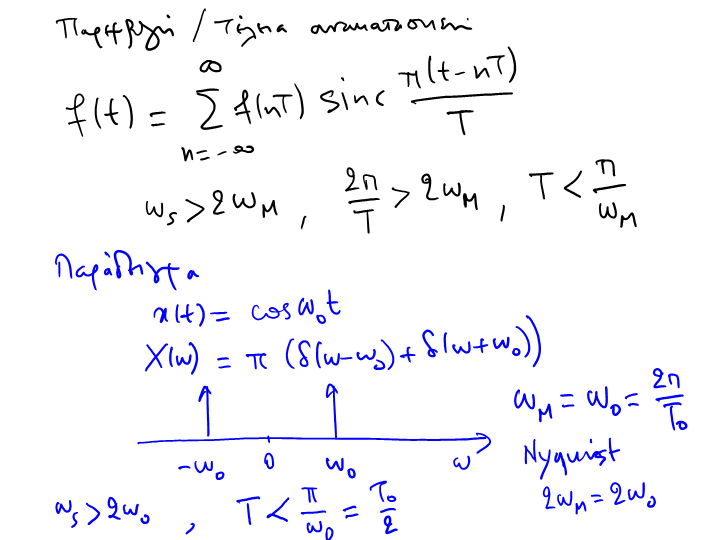 Παρεμβολή / Τύπος ανακατασκευής
f(t) = ∑_{n=-∞}^{∞} f(nT) sinc π(t-nT)/T
ω_s > 2ω_M , 2π/T > 2ω_M , T < π/ω_M
Παράδειγμα
x(t) = cos ω_0 t
X(ω) = π (δ(ω-ω_0) + δ(ω+ω_0))
ω_M = ω_0 = 2π/T_0
-ω_0 0 ω_0 ω
Nyquist
2ω_M = 2ω_0
ω_s > 2ω_0 , T < π/ω_0 = T_0/2